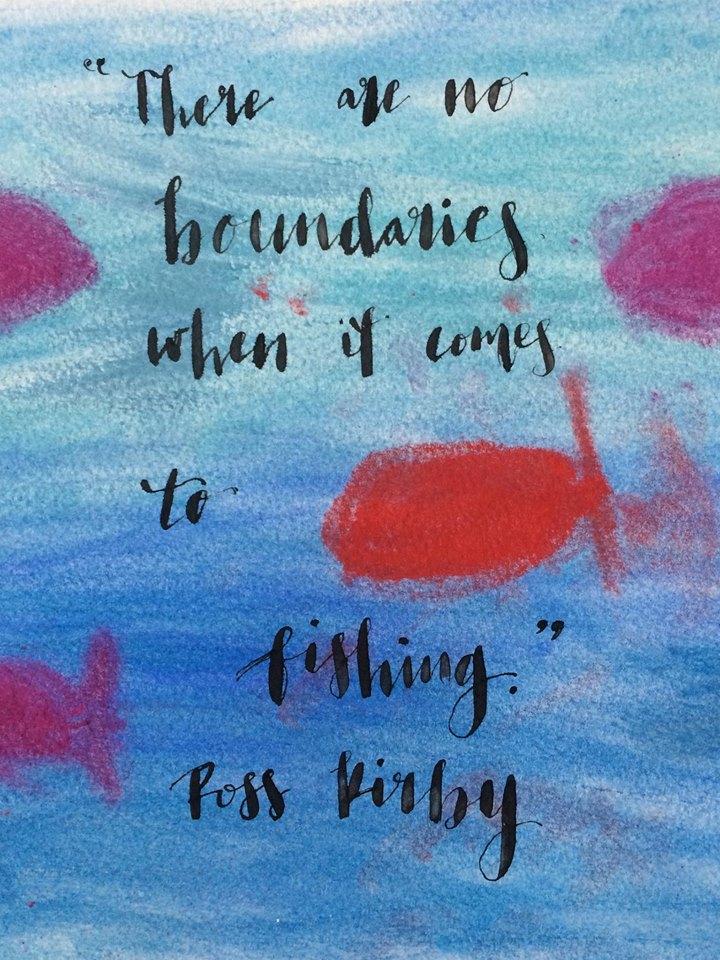 “There are no
boundaries
when it comes
to
fishing.”
Ross Kirby